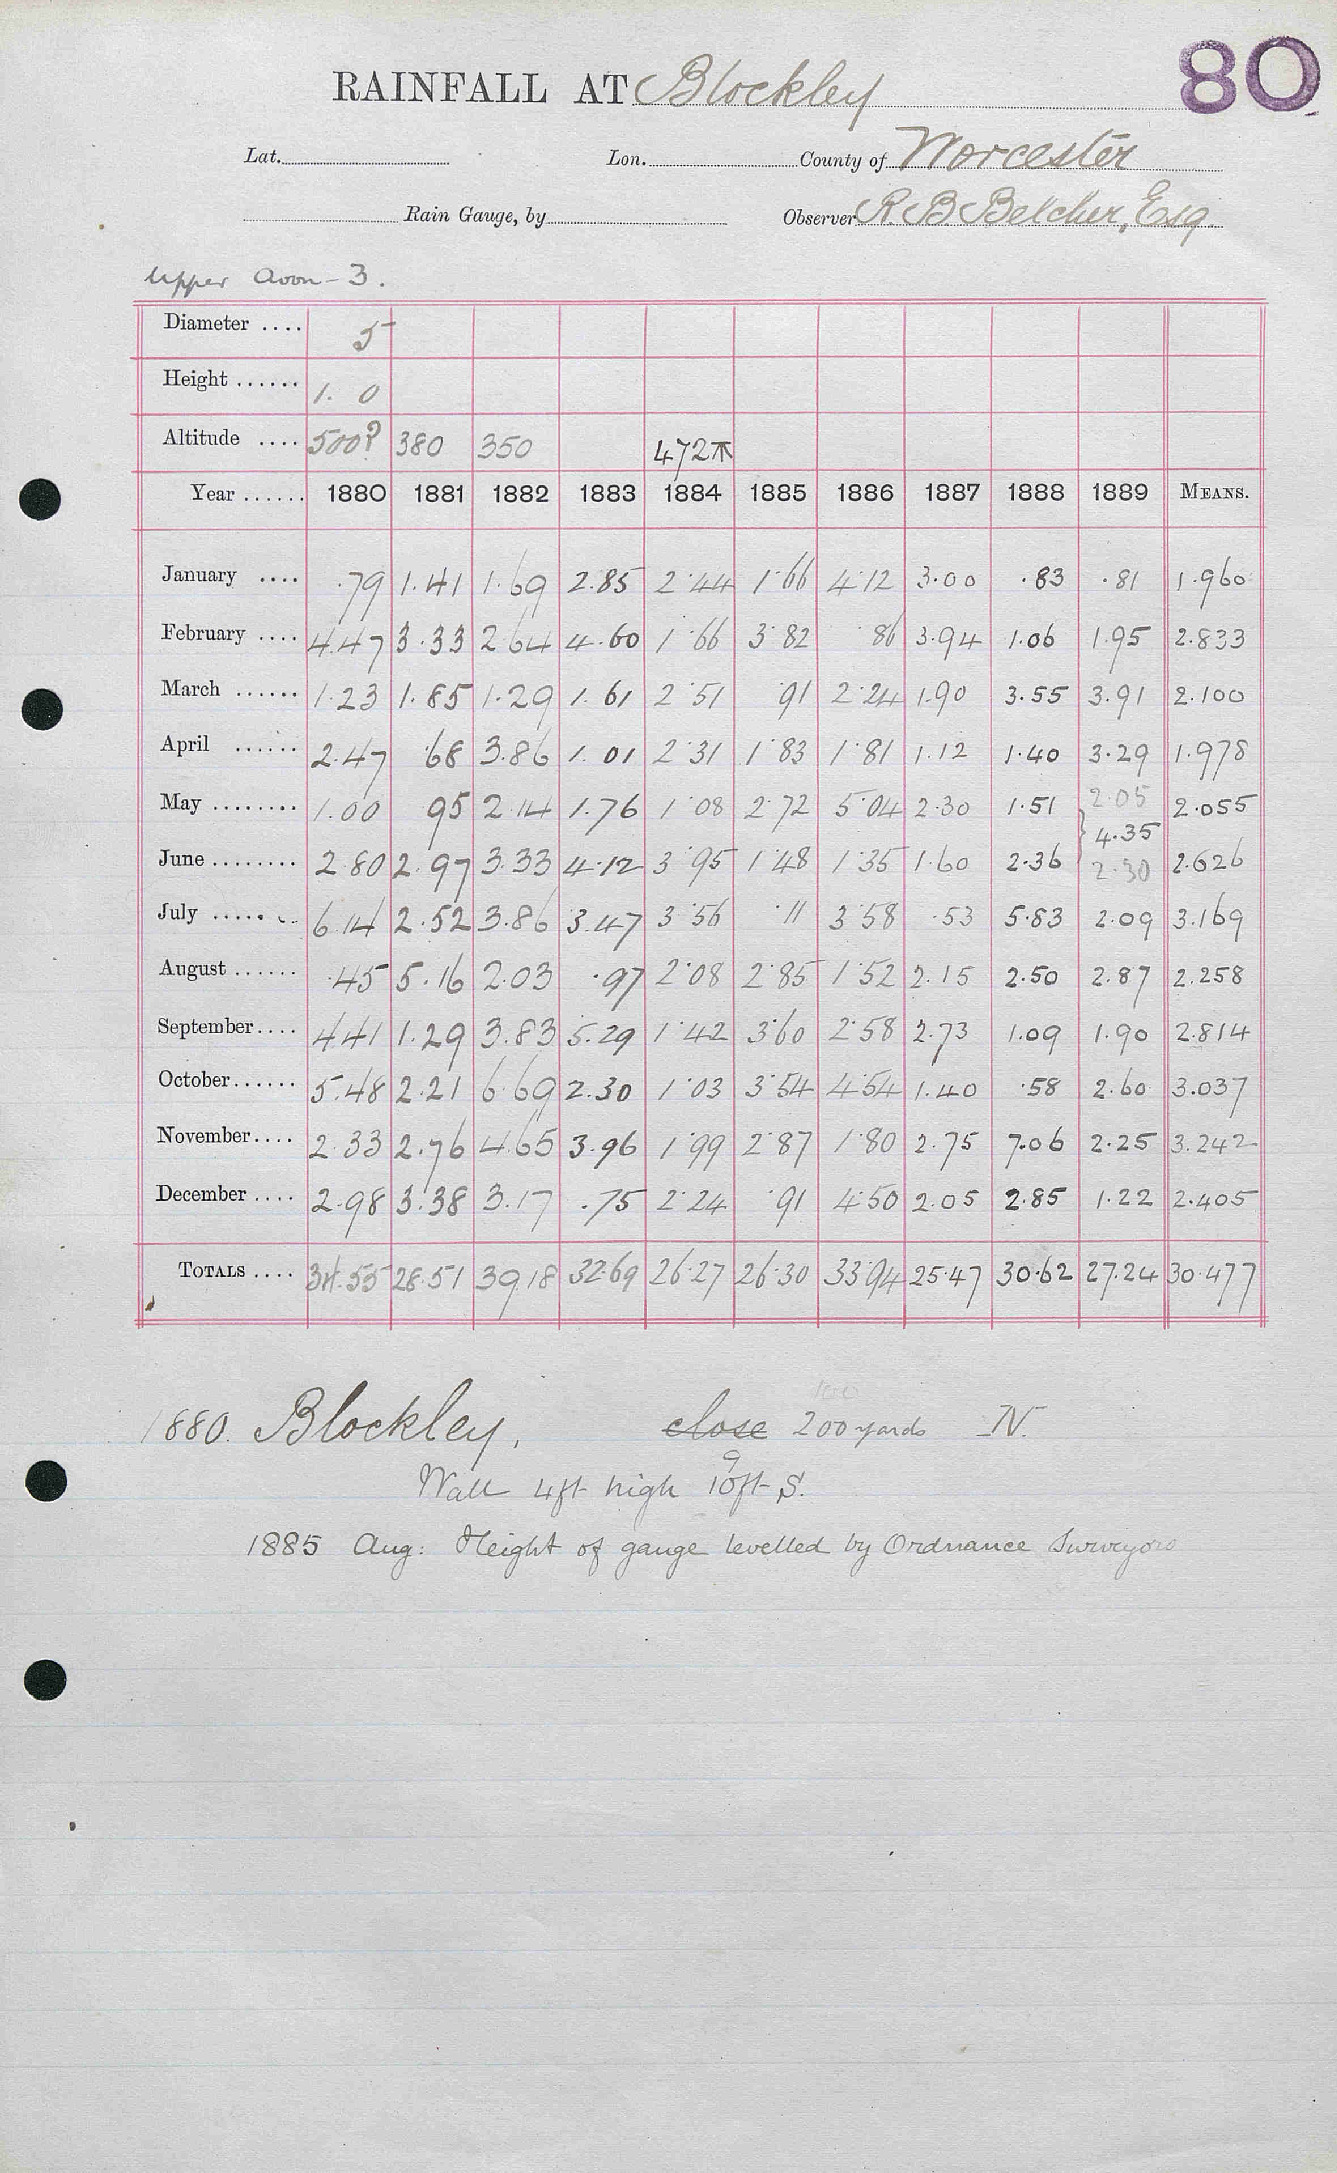 80
RAINFALL AT Blockley
Lat. Lon. County of Worcester
Rain Gauge, by Observer R. B. Belcher, Esq.
Upper Avon - 3.
Diameter .... 5
Height ...... 1. 0
Altitude .... 500? 380 350 472
Year ...... 1880 1881 1882 1883 1884 1885 1886 1887 1888 1889 MEANS.
January .... .79 1.41 1.69 2.85 2.44 1.66 4.12 3.00 .83 .81 1.960
February .... 4.47 3.33 2.64 4.60 1.66 3.82 86 3.94 1.06 1.95 2.833
March ...... 1.23 1.85 1.29 1.61 2.51 .91 2.24 1.90 3.55 3.91 2.100
April ...... 2.47 .68 3.86 1.01 2.31 1.83 1.81 1.12 1.40 3.29 1.978
May ........ 1.00 95 2.14 1.76 1.08 2.72 5.04 2.30 1.51 2.05 2.055
4.35
June ........ 2.80 2.97 3.33 4.12 3.95 1.48 1.35 1.60 2.36 2.30 2.626
July ...... 6.14 2.52 3.86 3.47 3.56 .11 3.58 .53 5.83 2.09 3.169
August ...... .45 5.16 2.03 .97 2.08 2.85 1.52 2.15 2.50 2.87 2.258
September .... 4.41 1.29 3.83 5.29 1.42 3.60 2.58 2.73 1.09 1.90 2.814
October ...... 5.48 2.21 6.69 2.30 1.03 3.54 4.54 1.40 .58 2.60 3.037
November .... 2.33 2.76 4.65 3.96 1.99 2.87 1.80 2.75 7.06 2.25 3.242
December .... 2.98 3.38 3.17 .75 2.24 .91 4.50 2.05 2.85 1.22 2.405
TOTALS .... 34.55 28.51 39.18 32.69 26.27 26.30 33.94 25.47 30.62 27.24 30.477
100
1880. Blockley, close 200 yards N.
9
Wall 4ft high 10ft S.
1885 Aug: Height of gauge levelled by Ordnance Surveyors